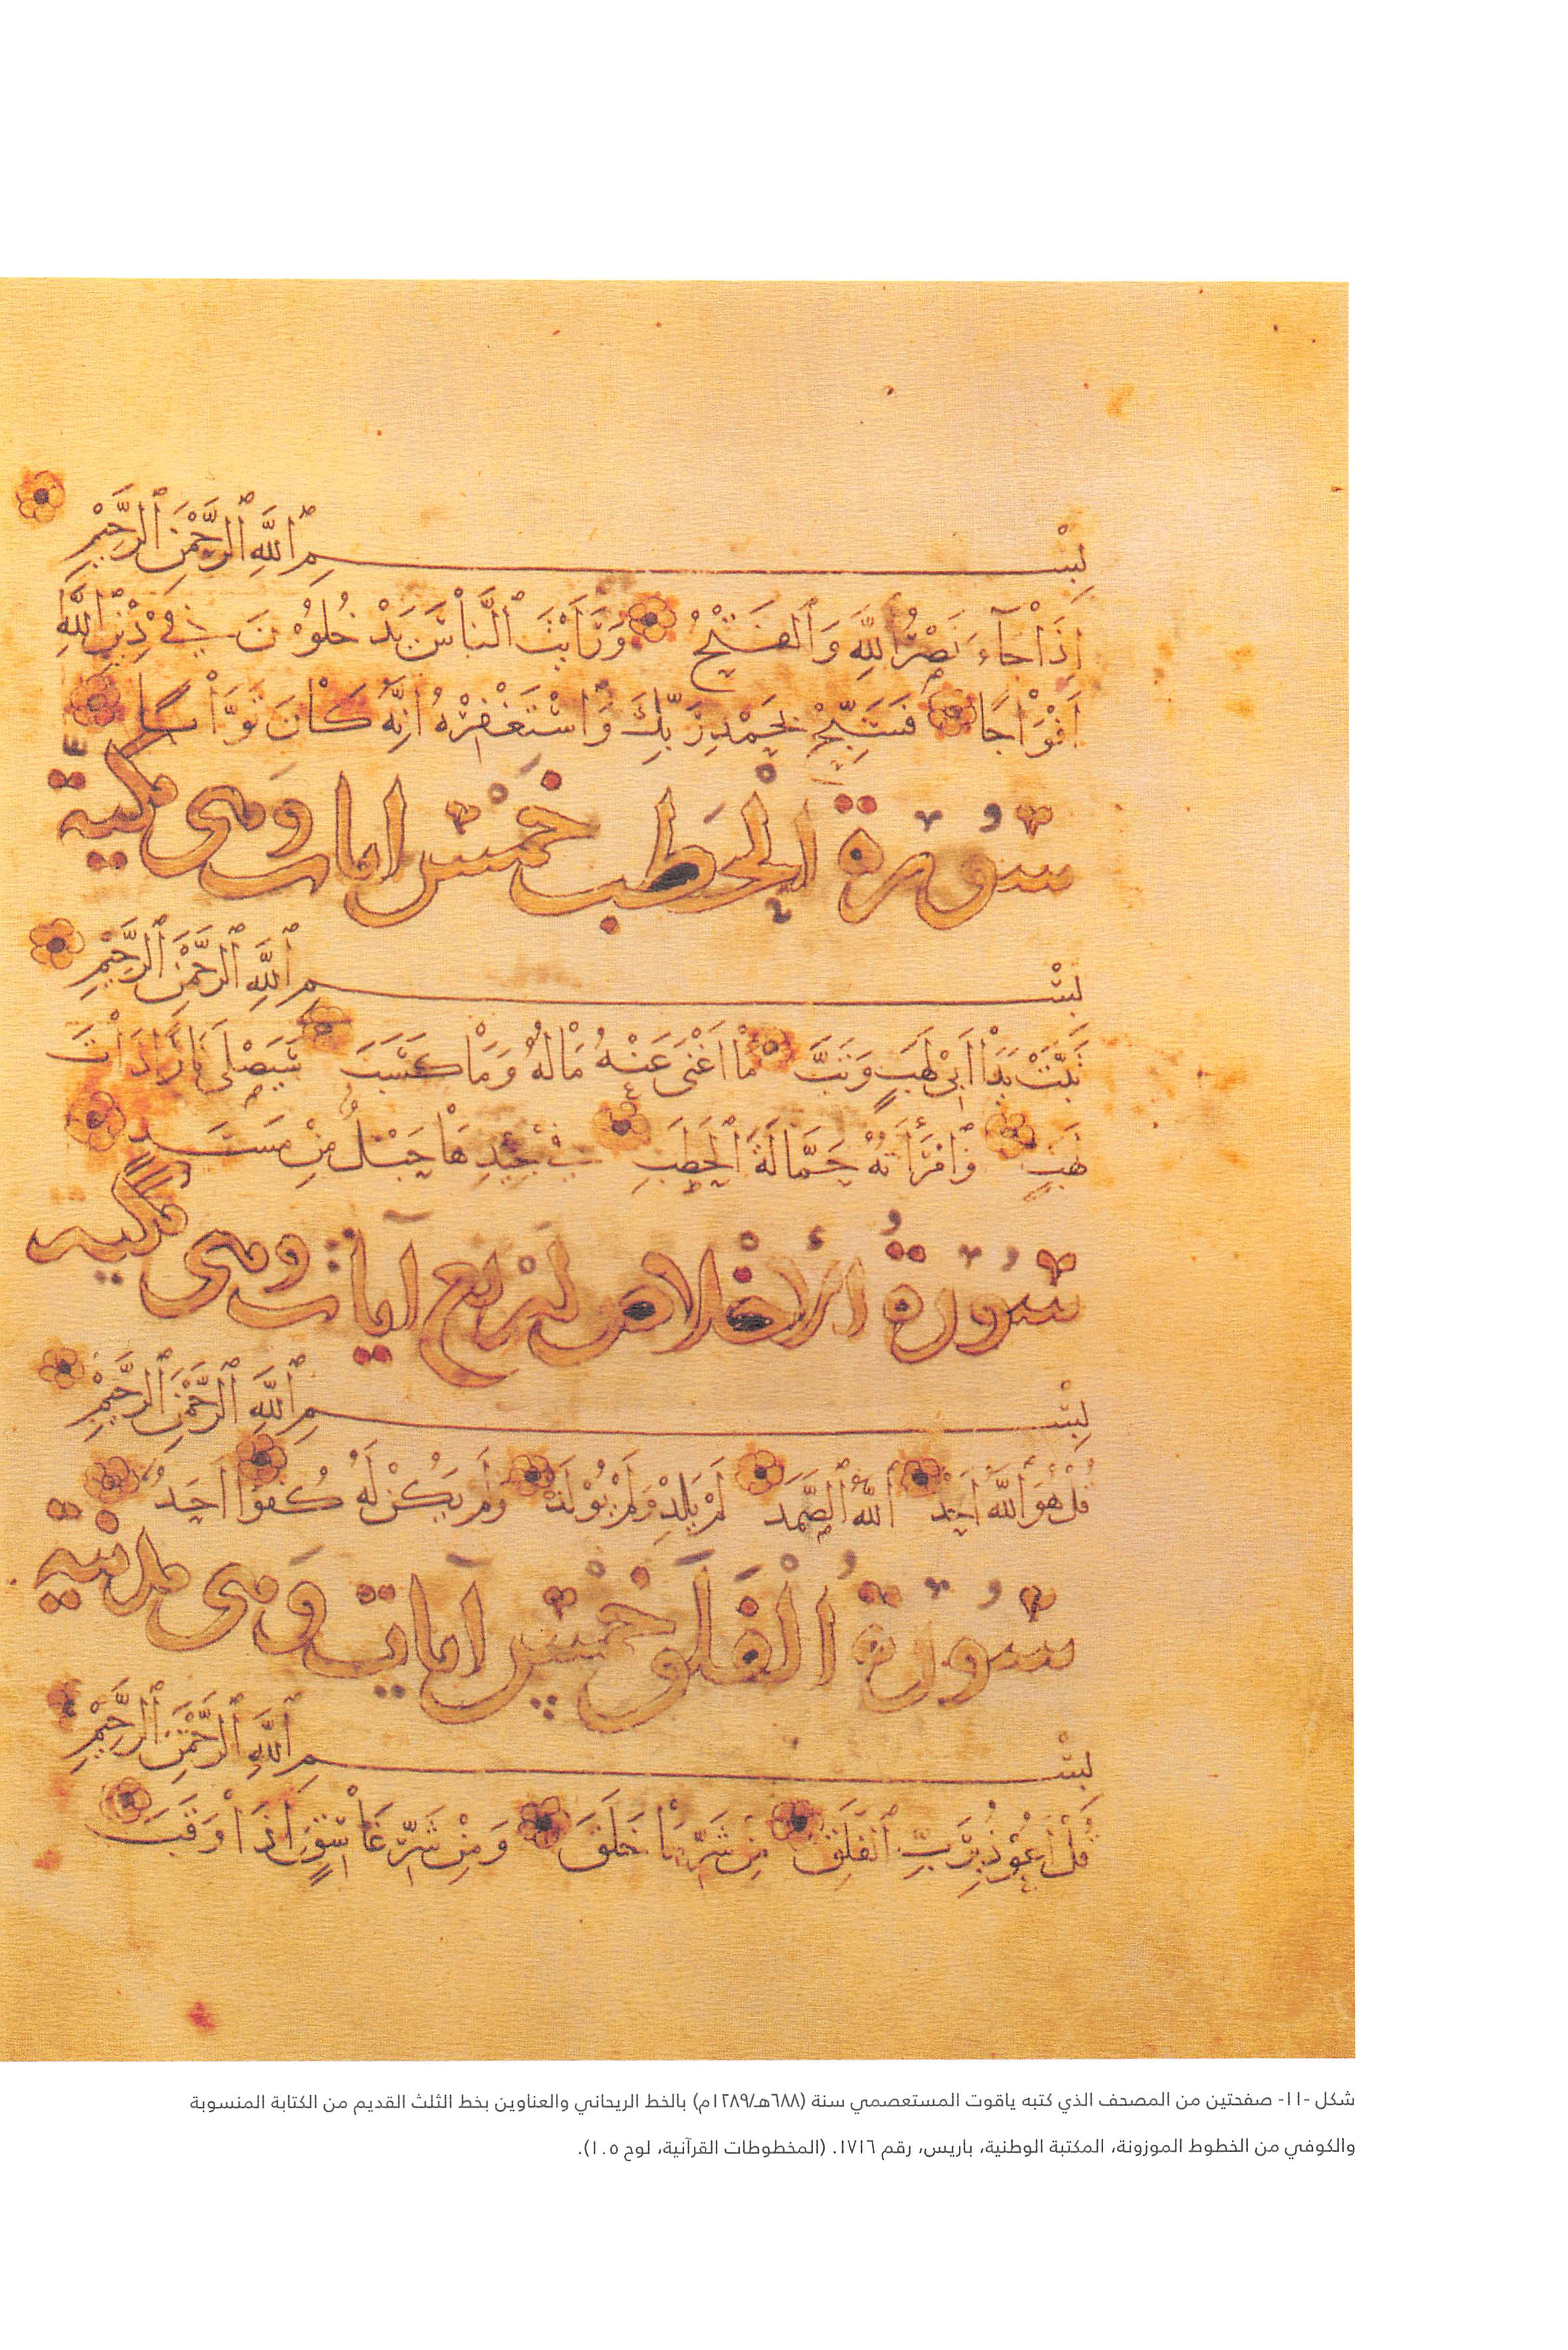 بِسْمِ ٱللَّهِ ٱلرَّحْمٰنِ ٱلرَّحِيْمِ
إِذَاْ جَآءَ نَصْرُ ٱللَّهِ وَٱلْفَتْحُ وَرَأَيْتَ ٱلنَّاسَ يَدْخُلُوْنَ فِيْ دِيْنِ ٱللَّهِ
أَفْوَاْجًا فَسَبِّحْ بِحَمْدِ رَبِّكَ وَٱسْتَغْفِرْهُ إِنَّهُ كَاْنَ تَوَّاْبًا
سُوْرَة الْحَطَب خَمْسْ اياتْ وهى مكية
بِسْمِ ٱللَّهِ ٱلرَّحْمٰنِ ٱلرَّحِيْمِ
تَبَّتْ يَدَاْ أَبِىْ لَهَبٍ وَتَبَّ مَاْ أَغْنَىْ عَنْهُ مَاْلُهُ وَمَاْ كَسَبَ سَيَصْلَى نَارًا ذَاْتَ
لَهَبٍ وَٱمْرَأَتُهُ حَمَّالَةَ ٱلْحَطَبِ فِىْ جِيْدِهَاْ حَبْلٌ مِنْ مَسَدٍ
سُوْرَةُ الْأخْلاص أَرْبع آيات وهى مكيه
بِسْمِ ٱللَّهِ ٱلرَّحْمٰنِ ٱلرَّحِيْمِ
قُلْ هُوَ ٱللَّهُ أَحَدٌ ٱللَّهُ ٱلصَّمَد لَمْ يَلِدْ وَلَمْ يُوْلَدْ وَلَمْ يَكُنْ لَهُ كُفُوًا أَحَدٌ
سُوْرَةُ الْفَلَق خَمْسْ آيات وَهى مدنية
بِسْمِ ٱللَّهِ ٱلرَّحْمٰنِ ٱلرَّحِيْمِ
قُلْ أَعُوْذُ بِرَبِّ ٱلْفَلَقِ مِنْ شَرِّ مَاْ خَلَقَ وَمِنْ شَرِّ غَاْسِقٍ إِذَاْ وَقَبَ
شكل -١١- صفحتين من المصحف الذي كتبه ياقوت المستعصمي سنة (٦٨٨هـ/١٢٨٩م) بالخط الريحاني والعناوين بخط الثلث القديم من الكتابة المنسوبة
والكوفي من الخطوط الموزونة، المكتبة الوطنية، باريس، رقم ١٧١٦. (المخطوطات القرآنية، لوح ١٠٥).